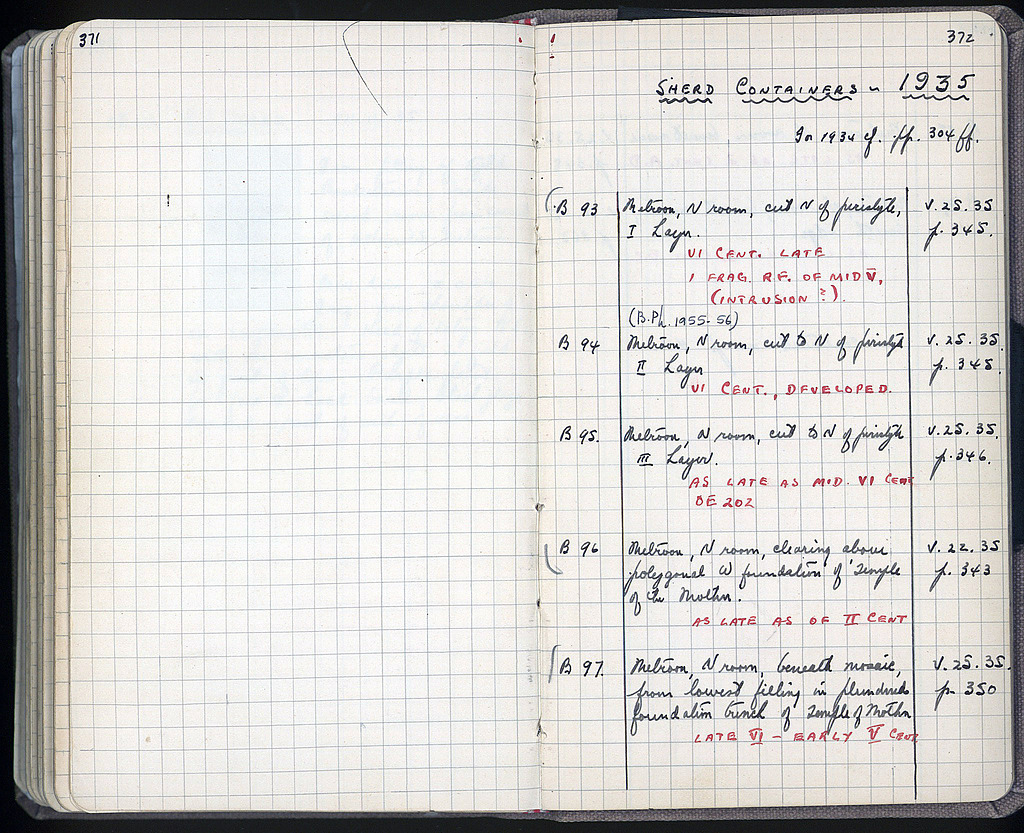 371
372
SHERD CONTAINERS - 1935
For 1934 cf. pp. 304 ff.
B 93 Metroon, N room, cut N of peristyle, V. 25. 35
I Layer. p. 345.
VI CENT. LATE
1 FRAG. R.F. OF MID V,
(INTRUSION?).
(B.Ph. 1955-56)
B 94 Metroon, N room, cut to N of peristyle V. 25. 35.
II Layer p. 345.
VI CENT., DEVELOPED.
B 95. Metroon, N room, cut to N of peristyle V. 25. 35.
III Layer. p. 346.
AS LATE AS MID. VI CENT
DE 202
B 96 Metroon, N room, clearing above V. 22. 35
polygonal W foundation of Temple p. 343
of the Mother.
AS LATE AS OF II CENT
B 97. Metroon, N room, beneath mosaic, V. 25. 35.
from lowest filling in plundered p. 350
foundation trench of Temple of Mother
LATE VI - EARLY V CENT